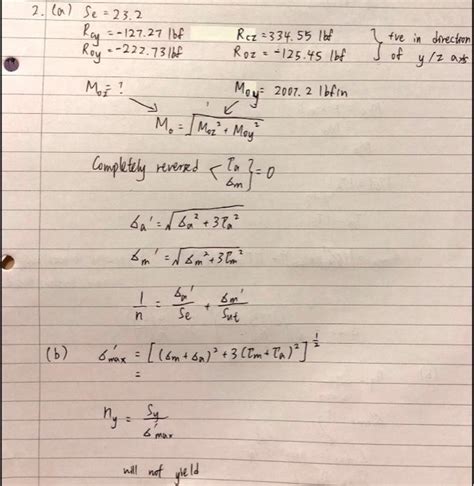 2. (a) Se = 23.2
Rcy = -127.27 lbf Rcz = 334.55 lbf } +ve in direction
Roy = -222.73 lbf Roz = -125.45 lbf of y/z axis
Moz = ? Moy = 2007.2 lbf in
Mo = √(Moz² + Moy²)
Completely reversed < τa σm } = 0
σa' = √(σa² + 3τa²)
σm' = √(σm² + 3τm²)
1/n = σa'/Se + σm'/Sut
(b) σ'max = [(σm + σa)² + 3(τm + τa)²]^½
=
ny = Sy/σ'max
will not yield